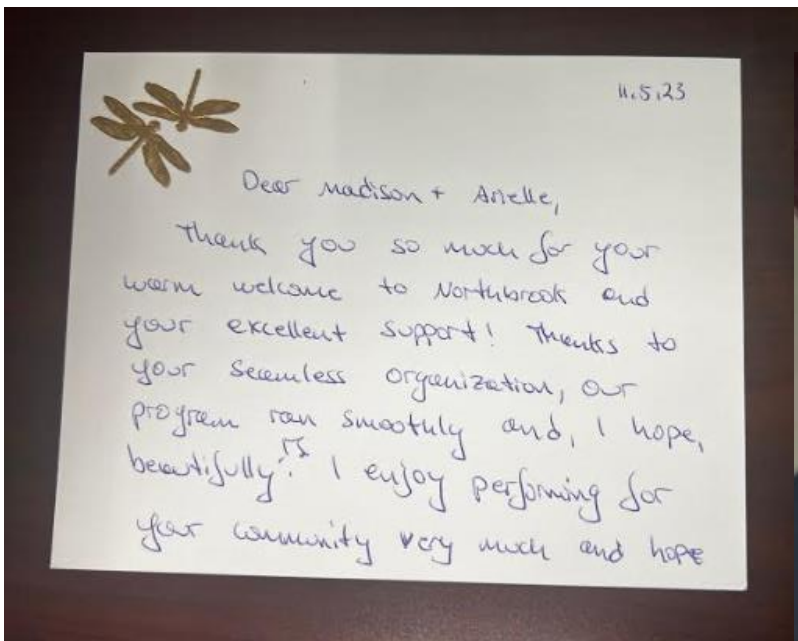 11.5.23
Dear Madison + Arielle,
Thank you so much for your
warm welcome to Northbrook and
your excellent support! Thanks to
your seamless organization, our
program ran smoothly and, I hope,
beautifully! I enjoy performing for
your community very much and hope